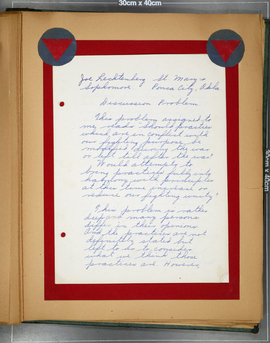 30cm x 40cm
Joe Rechtenberg St. Mary's
Sophomore Ponca City, Okla.
Discussion Problem
This problem assigned to
me, reads "Should practices
which are in conflict with
our fighting purpose, be
modified during the war
or left till after the war?
Would attempts to
bring practices fully into
harmony with purposes
at this time increase or
reduce our fighting unity?"
This problem is rather
deep and many persons
differ in their opinions
and the practices are not
definitely stated but
left to us to consider
what we think these
practices are. However,
30cm x 40cm